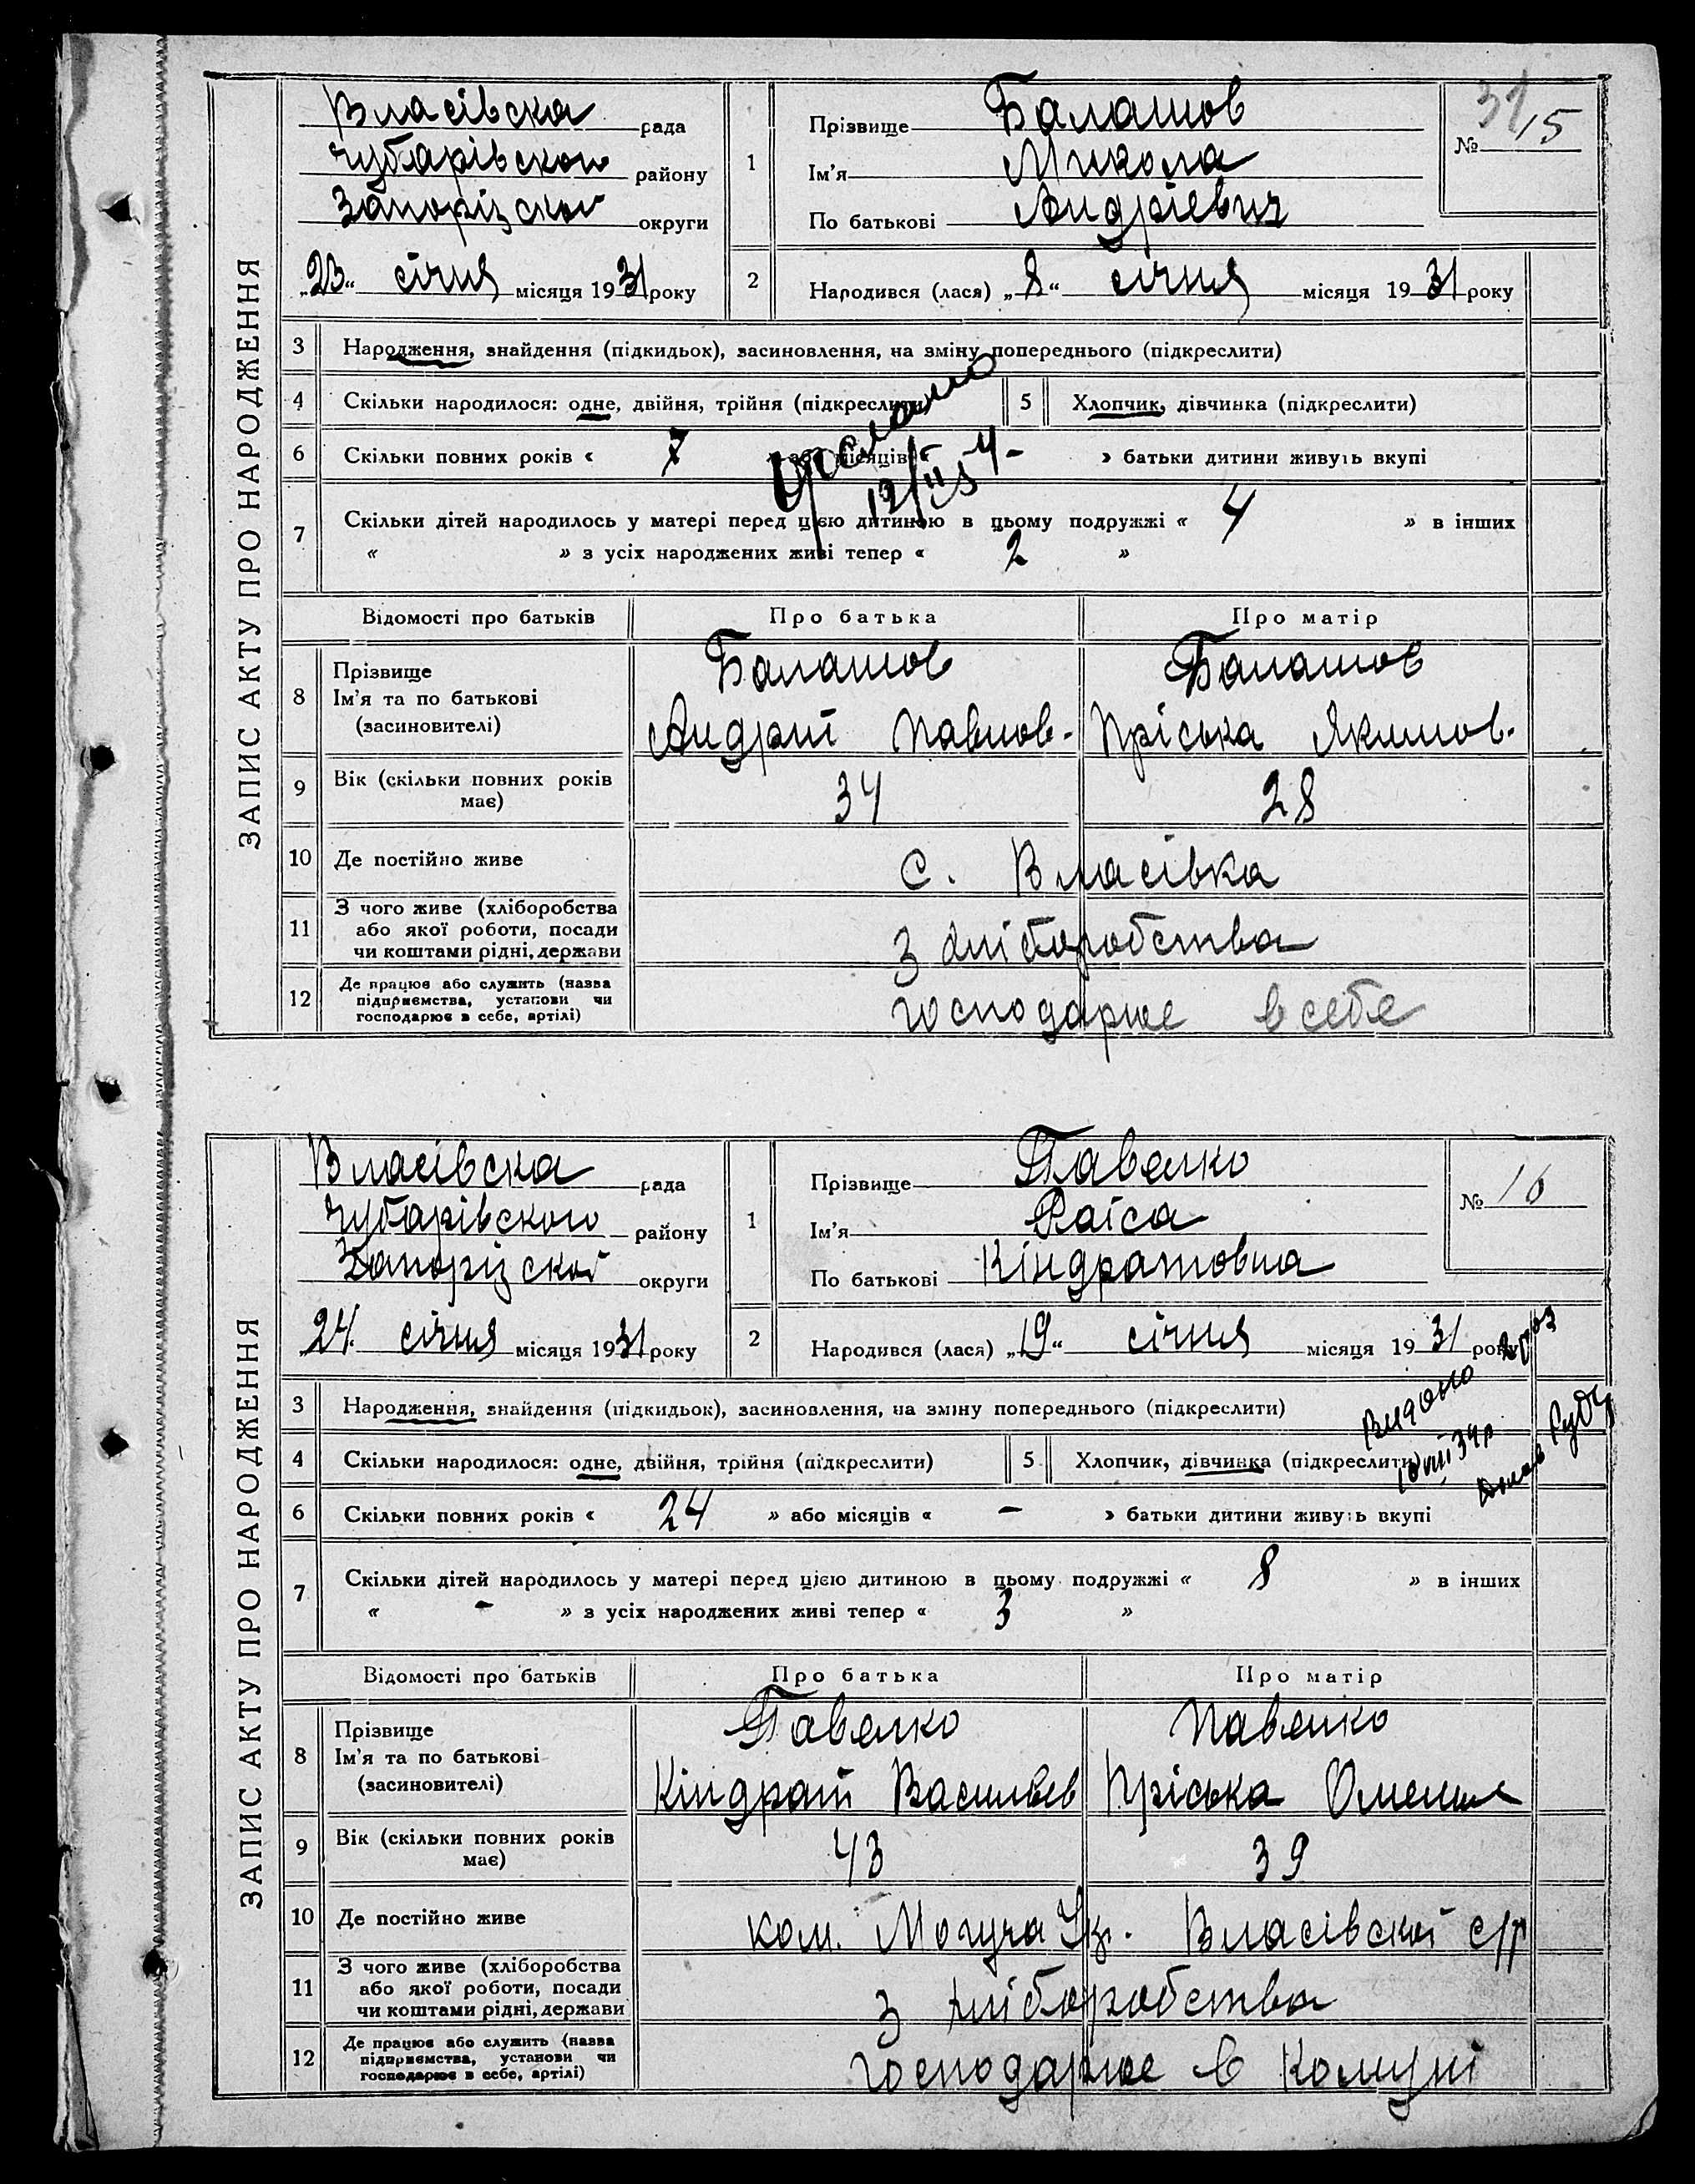 ЗАПИС АКТУ ПРО НАРОДЖЕННЯ
Власівска рада
Чубарівского району
Запорізской округи
„23“ січня місяця 1931 року
1
Прізвище Балашов
Ім'я Микола
По батькові Андрієвич
31
№ 15
2 Народився (лася) „8“ січня місяця 1931 року
3 Народження, знайдення (підкидьок), засиновлення, на зміну попереднього (підкреслити)
4 Скільки народилося: одне, двійня, трійня (підкреслити) 5 Хлопчик, дівчинка (підкреслити)
6 Скільки повних років « 7 » або місяців « - » батьки дитини живуть вкупі
12/II 54
7 Скільки дітей народилось у матері перед цією дитиною в цьому подружжі « 4 » в інших
« » з усіх народжених живі тепер « 2 »
Відомості про батьків Про батька Про матір
8 Прізвище Балашов Балашов
Ім'я та по батькові
(засиновителі) Андрій Павлов- Пріська Якимов.
9 Вік (скільки повних років має) 34 28
10 Де постійно живе с. Власівка
11 З чого живе (хліборобства
або якої роботи, посади
чи коштами рідні, держави З хліборобства
12 Де працює або служить (назва
підприємства, установи чи
господарює в себе, артілі) господарює в себе
ЗАПИС АКТУ ПРО НАРОДЖЕННЯ
Власівска рада
Чубарівского району
Запорізской округи
„24“ січня місяця 1931 року
1
Прізвище Павелко
Ім'я Раїса
По батькові Кіндратовна
№ 16
2 Народився (лася) „19“ січня місяця 1931 року
3 Народження, знайдення (підкидьок), засиновлення, на зміну попереднього (підкреслити)
Видано
4 Скільки народилося: одне, двійня, трійня (підкреслити) 5 Хлопчик, дівчинка (підкреслити)
6 Скільки повних років « 24 » або місяців « - » батьки дитини живуть вкупі
7 Скільки дітей народилось у матері перед цією дитиною в цьому подружжі « 8 » в інших
« - » з усіх народжених живі тепер « 3 »
Відомості про батьків Про батька Про матір
8 Прізвище Павелко Павелко
Ім'я та по батькові
(засиновителі) Кіндрат Васильев Пріська
9 Вік (скільки повних років має) 43 39
10 Де постійно живе ком. Могуча Власівскої с/р
11 З чого живе (хліборобства
або якої роботи, посади
чи коштами рідні, держави З хліборобства
12 Де працює або служить (назва
підприємства, установи чи
господарює в себе, артілі) господарює в комуні